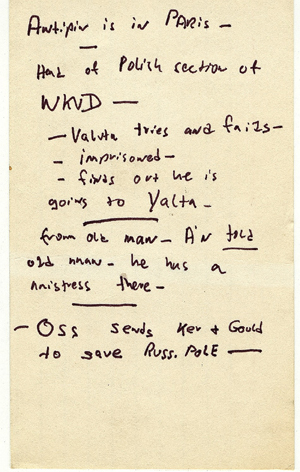 Antipin is in PARIS —
Head of Polish section of
NKVD —
— Valuta tries and fails —
- imprisoned —
- finds out he is
going to Yalta —
from old man — A'n told
old man — he has a
mistress there —
— OSS sends Ker + Gould
to save Russ. POLE —